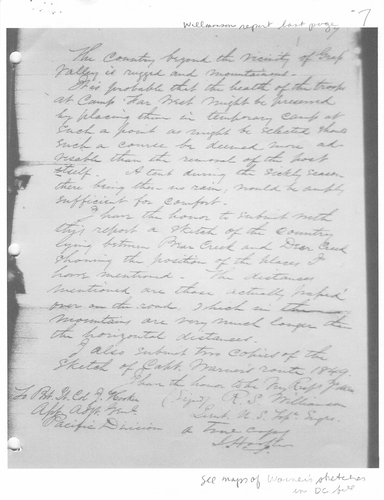 Williamson report last page
7
The Country beyond the vicinity of Grap
Valley is rugged and mountainous.
It is probable that the health of the troops
at Camp Far West might be preserved
by placing them in temporary camp at
such a point as might be selected should
such a course be deemed more ad-
visable than the removal of the post
itself. A tent during the sickly season
there being then no rain, would be amply
sufficient for comfort.
I have the honor to submit with
this report a sketch of the Country
lying between Bear Creek and Deer Creek
showing the position of the places I
have mentioned. The distances
mentioned are those actually passed
over on the road, which in the
mountains are very much longer than
the horizontal distances.
I also submit two copies of the
Sketch of Capt. Warner's route 1849.
I have the honor to be Very Resp Yours
(Signed) R. S. Williamson
To Bvt. Lt. Col J. Hooker
Lieut. U. S. Top. Engrs.
Asst. Adjt. Genl.
Pacific Division
a true copy
See maps of Warner's sketches
in DC file